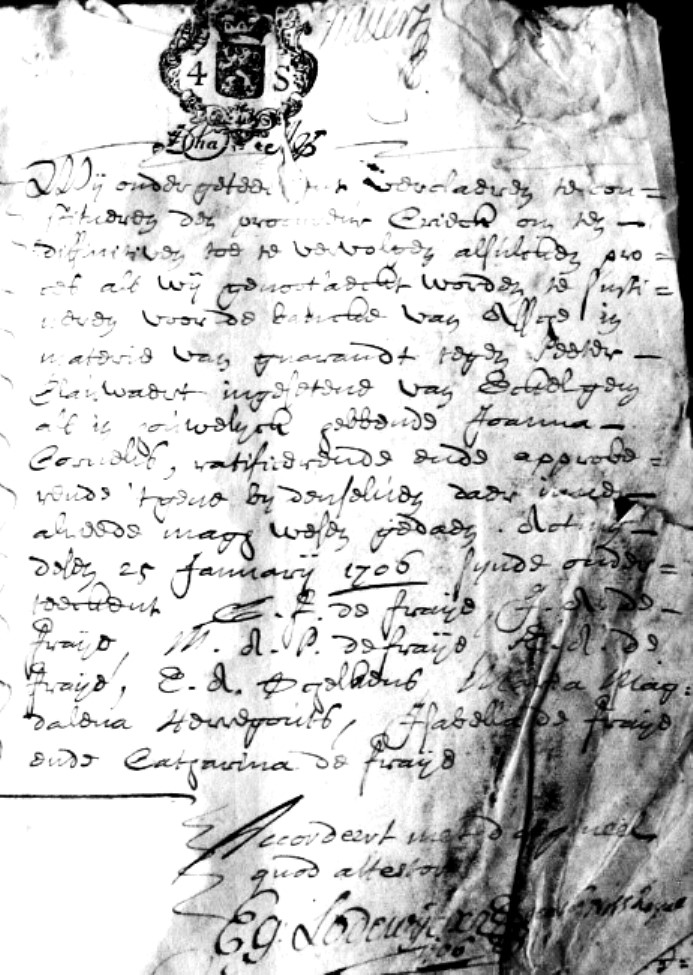 4 S
Wij ondergeteec verclaeren te con=
stitueren den procureur Crieck om ten
diffinitiven toe te vervolgen alsulcken pro=
ces als wij genootsaeckt worden te susti=
neren voor de bancke van Assche in
materie van guarandt tegen Peeter
Clauwaert ingesetene van Eekelgem
als in houwelijck hebbende Joanna
Cornelis, ratificerende ende approbe=
rende 'tgene bij denselven daer inne
alreede magh wesen gedaen. Actum
desen 25 Januarij 1706 sijnde onder=
teeckent C. F. de fraije, J. A. de
fraije, M. A. P. de fraije A. de
fraije, E. A. Maria Mag=
dalena Herregouts, Isabella de fraije
ende Catharina de fraije
Accordeert met d'origineel
quod attestor
Eg. Lodewijckx